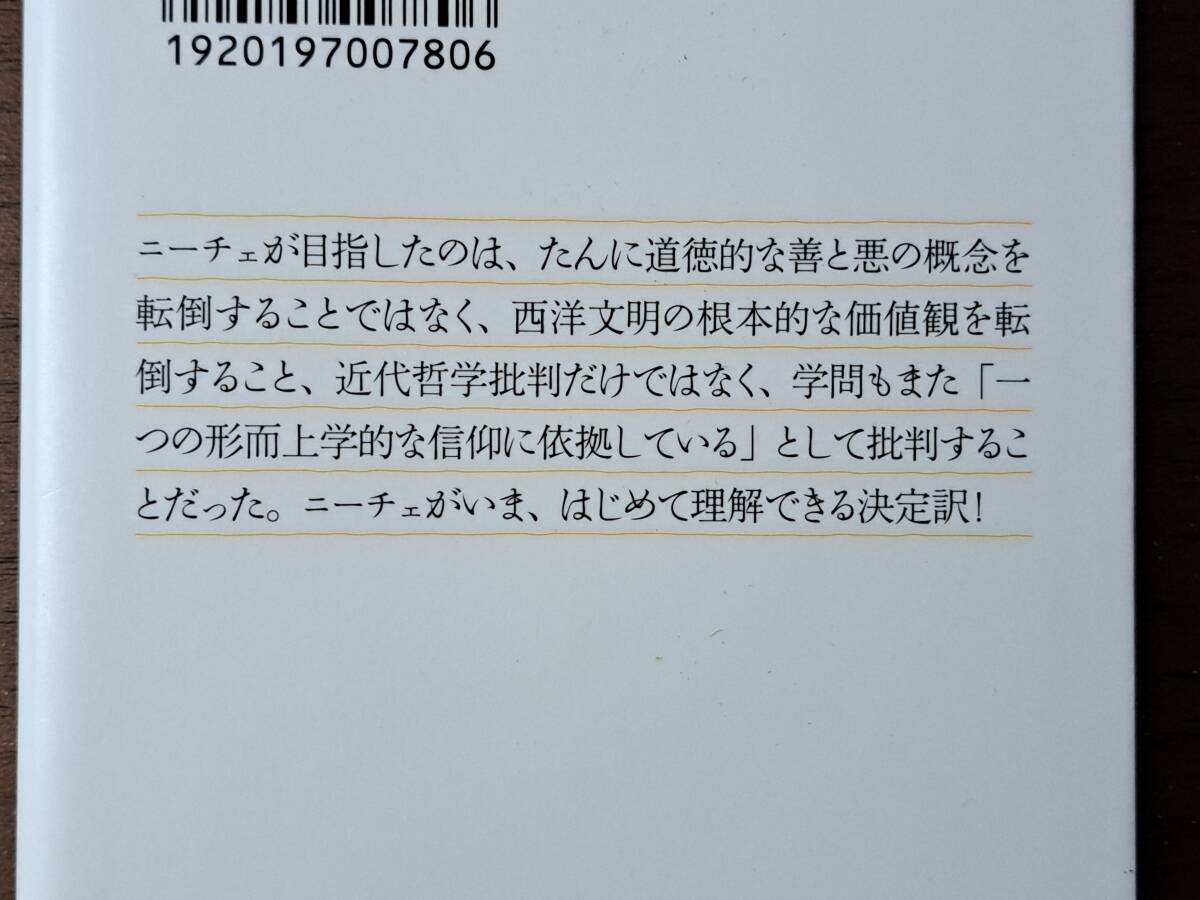 1920197007806
ニーチェが目指したのは、たんに道徳的な善と悪の概念を
転倒することではなく、西洋文明の根本的な価値観を転
倒すること、近代哲学批判だけではなく、学問もまた「一
つの形而上学的な信仰に依拠している」として批判するこ
とだった。ニーチェがいま、はじめて理解できる決定訳!